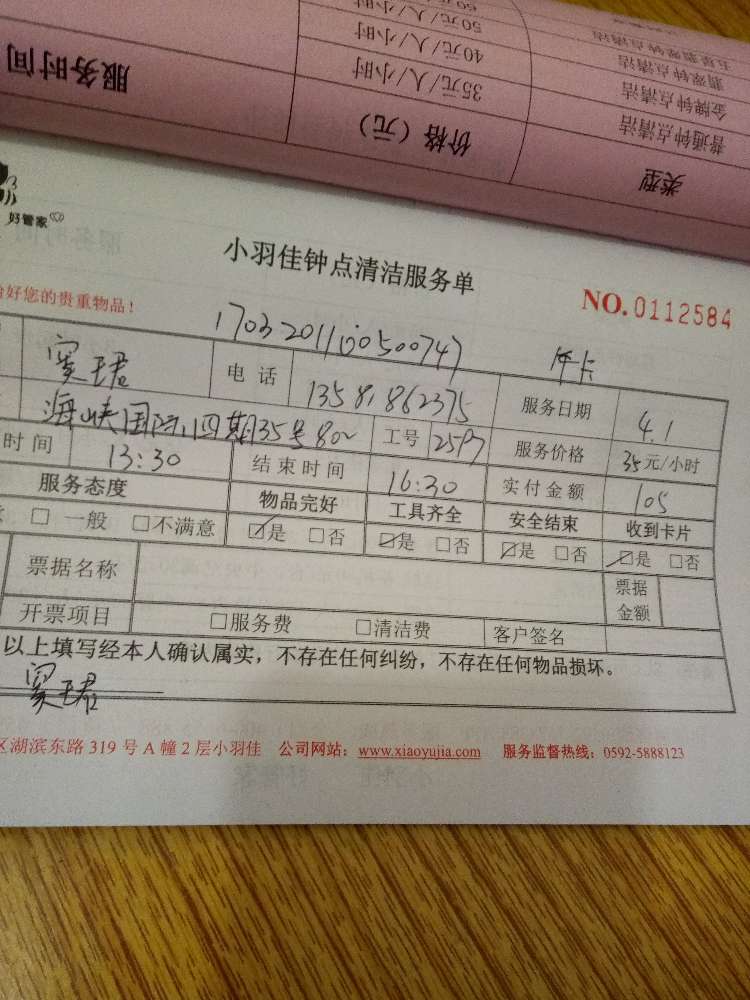 60元/人/小时
五星翡翠钟点清洁 50元/人/小时
翡翠钟点清洁 40元/人/小时
金牌钟点清洁 35元/人/小时
普通钟点清洁
类型 价格（元） 服务时间
好管家
小羽佳钟点清洁服务单
好您的贵重物品！
NO.0112584
17032011000500747
年卡
窦珺 电话 13581862375 服务日期 4.1
海峡国际四期35号802 工号 2597 服务价格 35元/小时
时间 13:30 结束时间 16:30 实付金额 105
服务态度 物品完好 工具齐全 安全结束 收到卡片
□一般 □不满意 ☑是 □否 ☑是 □否 ☑是 □否 ☑是 □否
票据名称 票据金额
开票项目 □服务费 □清洁费 客户签名
以上填写经本人确认属实，不存在任何纠纷，不存在任何物品损坏。
窦珺
区湖滨东路319号A幢2层小羽佳 公司网站：www.xiaoyujia.com 服务监督热线：0592-5888123